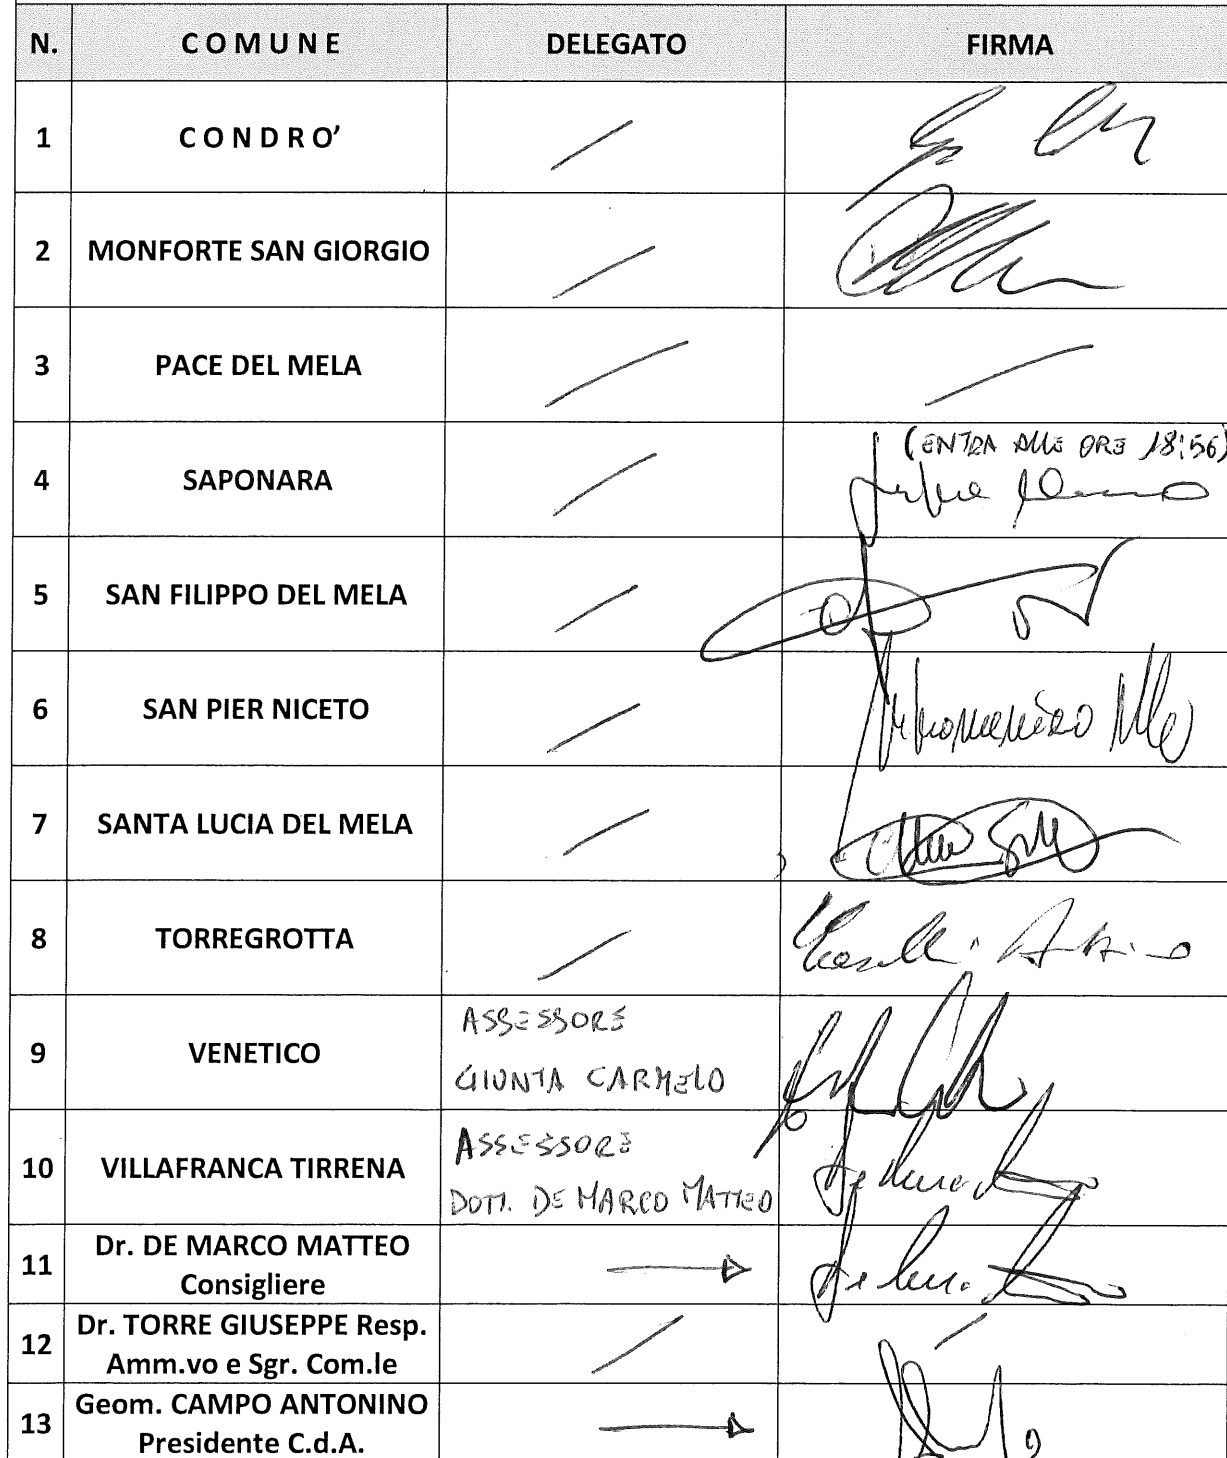 N. COMUNE DELEGATO FIRMA
1 CONDRO'
2 MONFORTE SAN GIORGIO
3 PACE DEL MELA
(ENTRA ALLE ORE 18:56)
4 SAPONARA
5 SAN FILIPPO DEL MELA
6 SAN PIER NICETO
7 SANTA LUCIA DEL MELA
8 TORREGROTTA
ASSESSORE
9 VENETICO
GIUNTA CARMELO
ASSESSORE
10 VILLAFRANCA TIRRENA
DOTT. DE MARCO MATTEO
11 Dr. DE MARCO MATTEO
Consigliere
12 Dr. TORRE GIUSEPPE Resp.
Amm.vo e Sgr. Com.le
13 Geom. CAMPO ANTONINO
Presidente C.d.A.